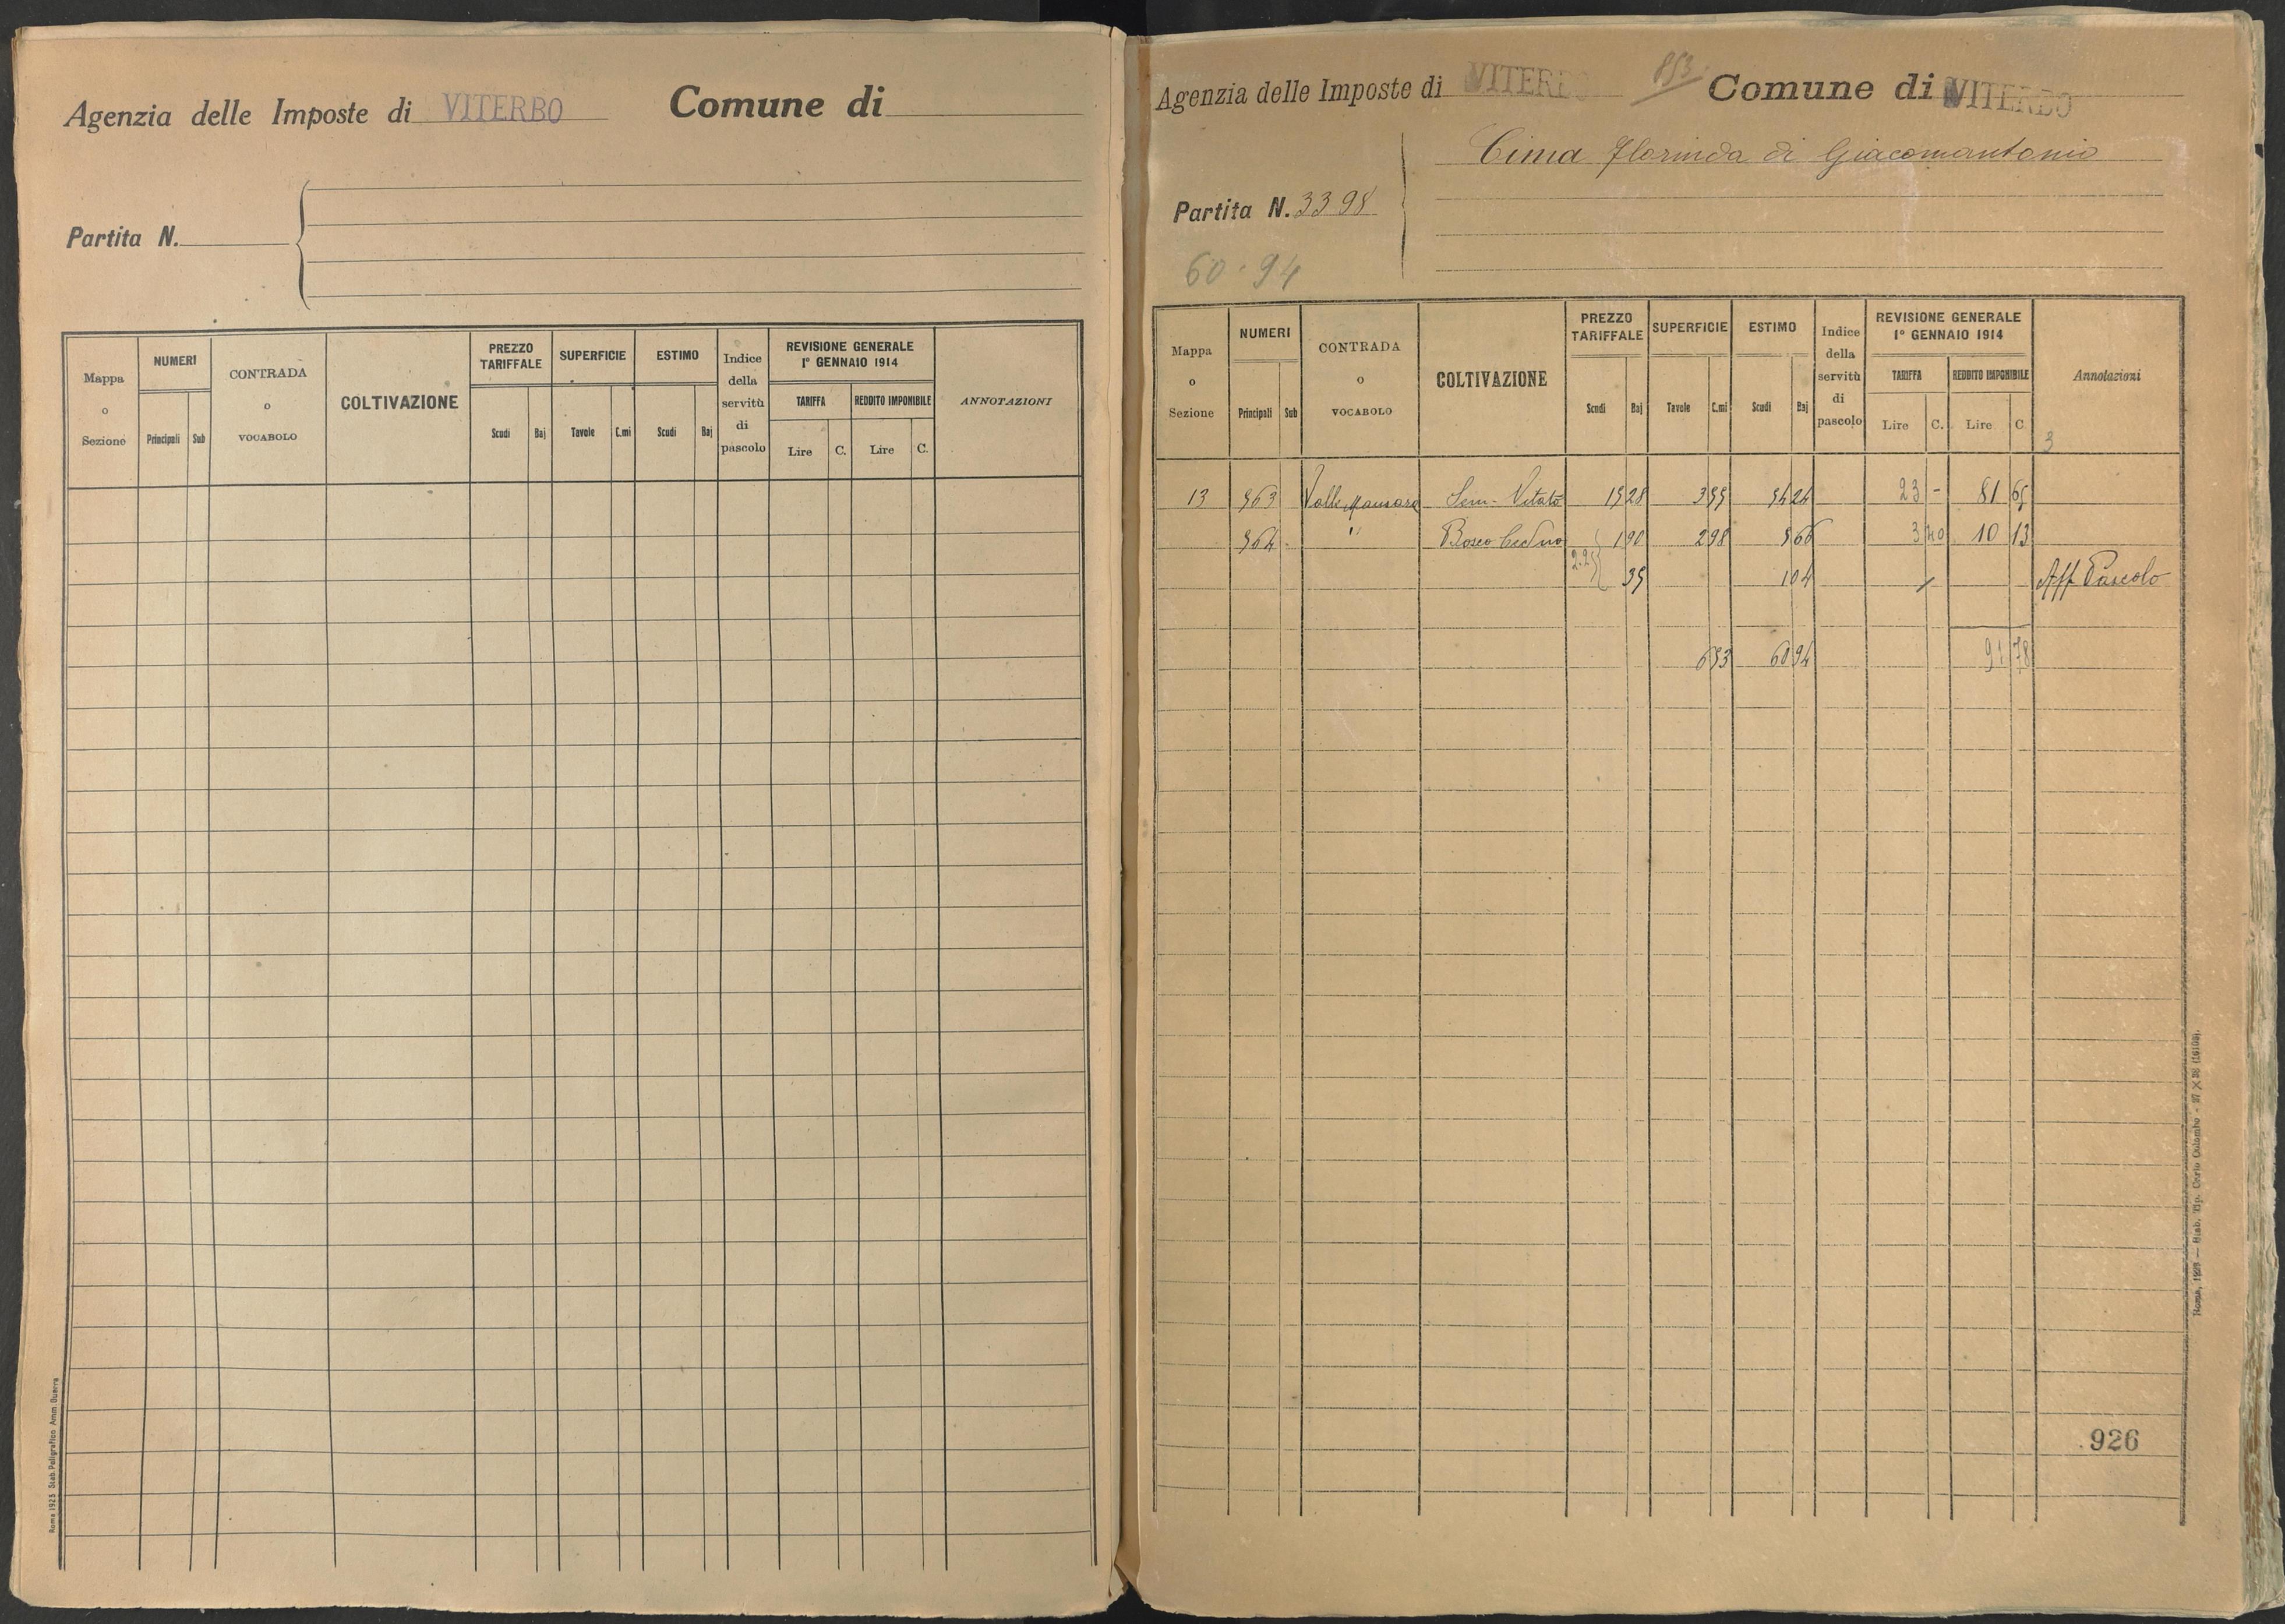 Agenzia delle Imposte di VITERBO Comune di
Partita N.
Mappa o Sezione NUMERI Principali Sub CONTRADA o VOCABOLO COLTIVAZIONE PREZZO TARIFFALE Scudi Baj SUPERFICIE Tavole C.mi ESTIMO Scudi Baj Indice della servitù di pascolo REVISIONE GENERALE 1° GENNAIO 1914 TARIFFA Lire C. REDDITO IMPONIBILE Lire C. ANNOTAZIONI
Roma 1923 Stab. Poligrafico Amm. Guerra
Agenzia delle Imposte di VITERBO 853 Comune di VITERBO
Cima Florinda di Giacomantonio
Partita N. 3398
60.94
Mappa o Sezione NUMERI Principali Sub CONTRADA o VOCABOLO COLTIVAZIONE PREZZO TARIFFALE Scudi Baj SUPERFICIE Tavole C.mi ESTIMO Scudi Baj Indice della servitù di pascolo REVISIONE GENERALE 1° GENNAIO 1914 TARIFFA Lire C. REDDITO IMPONIBILE Lire C. Annotazioni
3
13 563 Valle Sem. Vitato 15 28 3 55 54 24 23 - 81 65
564 " Bosco Ceduo 1 90 2 98 5 66 3 40 10 13
2.25 35 1 04 Aff Pascolo
6 53 60 94 91 78
926
Roma, — Stab. Tip. Carlo Colombo - 27 X 38